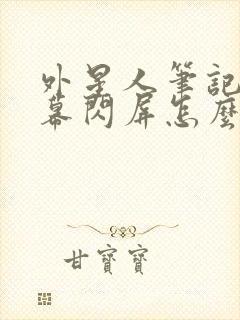 外星人筆記
幕閃屏怎麼
甘寶寶